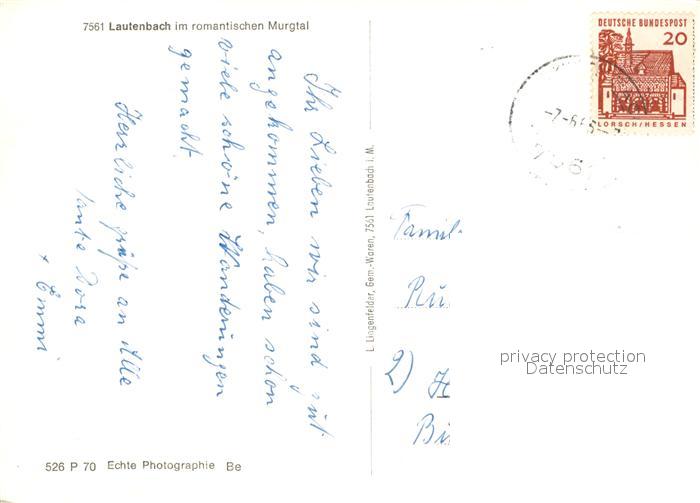 7561 Lautenbach im romantischen Murgtal
Ihr Lieben wir sind gut
angekommen, haben schon
viele schöne Wanderungen
gemacht.
Herzliche Grüße an Alle
Tante Dora
+ Emmi
526 P 70 Echte Photographie Be
L. Lingenfelder, Gem.-Waren, 7561 Lautenbach i. M.
DEUTSCHE BUNDESPOST
20
LORSCH/HESSEN
Famil
Ru
2) H
Bi
privacy protection
Datenschutz